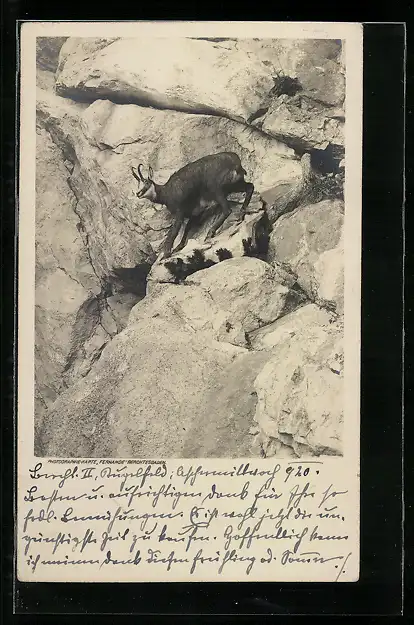 PHOTOGRAPHIE-KARTE „FERNANDE" BERCHTESGADEN.
Bercht. II, Kugelfeld, Aschermittwoch 920.
Besten u. aufrichtigen Dank für Ihre so
frdl. Bemühungen. Es ist wohl jetzt die un-
günstigste Zeit zu kaufen. Hoffentlich kann
ich meinen Dank diesen Frühling od. Somm